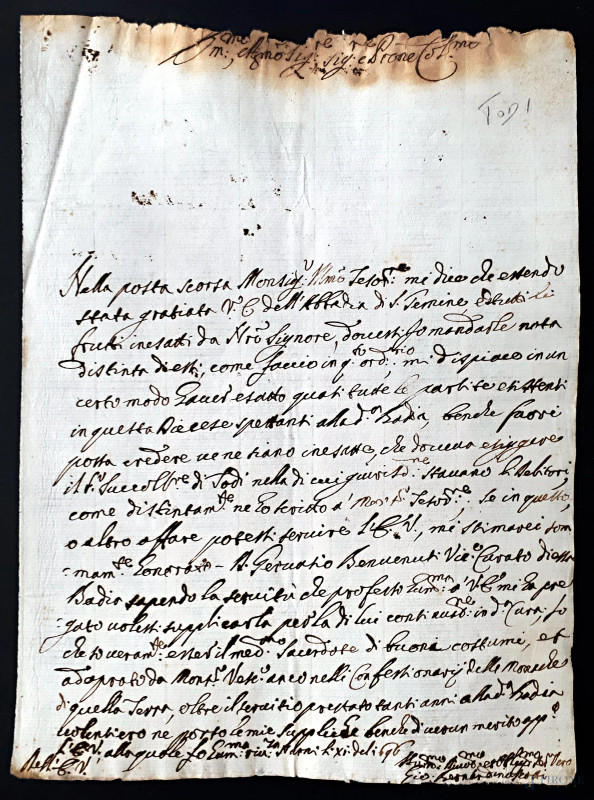 Em.mo e R.mo Sig.re Sig.re e Prone Col.mo
Todi
Nella posta scorsa Monsig.r Ill.mo Tesor.re mi dice che essendo
stata gratiata V.E. dell'Abbadia di S. Gemine, e di tutti li
frutti inesatti da N.ro Signore, dovessi Io mandarle nota
distinta di essi, come faccio in q.sto ord.rio mi dispiace in un
certo modo haver esatto quasi tutte le partite esistenti
in questa Diocese spettanti alla d.a Badia, benche fuori
possa credere ve ne siano inesatte, che doveva esiggere
il S. Succoll.re di Todi nella di cui giurisd.ne stavano li Debitori,
come distintam.te ne ho scritto a Mons.r Tesor.re. Se in questo,
o altro affare potessi servire l'E.V., mi stimarei som
mam.te honorato - D. Gervatio Benvenuti Vic.o Curato di essa
Badia sapendo la servitù che professo hum.ma a V.E. mi ha pre
gato volessi supplicarla per la di lui continuat.ne in d.a Cura, Io
che so veram.te esser il med.mo Sacerdote di buoni costumi, et
adoprato da Mons.r Vesc.o anco nelli Confessionarij delle Monache
di quella Terra, oltre il servitio prestato tanti anni alla d.a Badia
volentiero ne porto le mie suppliche benche di verun merito app.o
l'E.V. alla quale fo hum.ma riv.za Narni li xi
Dell'E.V.
Hum.mo Div.mo et Oblig.mo Ser Vero
Gio: